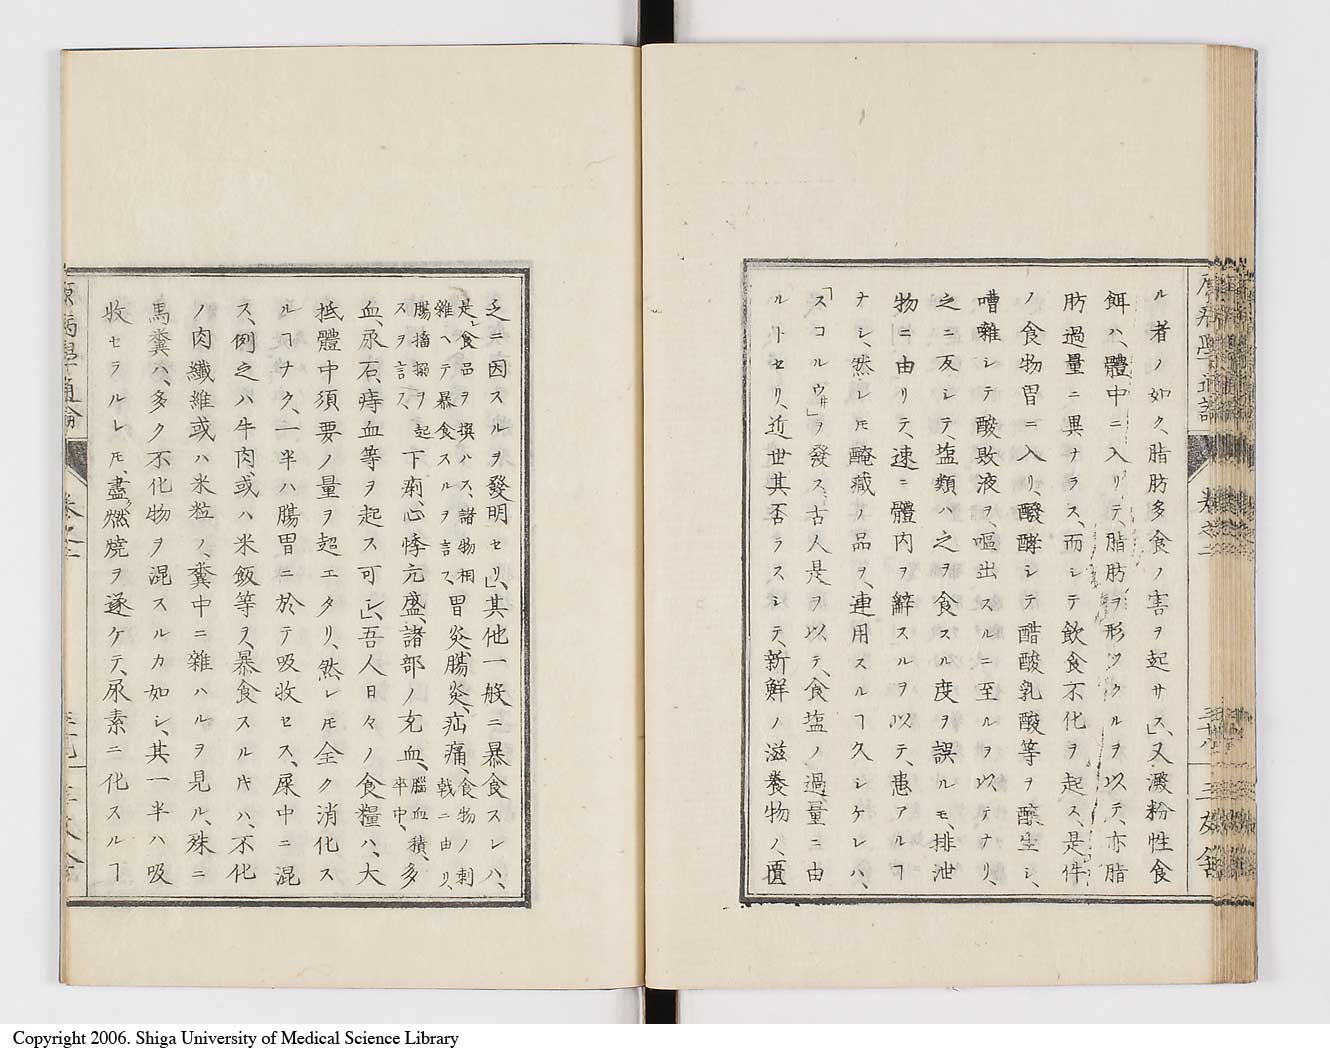 ル者ノ如ク、脂肪多食ノ害ヲ起サス」又澱粉性食
餌ハ、體中ニ入リテ、脂肪ヲ形ツクルヲ以テ、亦脂
肪過量ニ異ナラス、而シテ飲食不化ヲ起ス、是件
ノ食物胃ニ入リ、醱酵シテ醋酸乳酸等ヲ釀生シ、
嘈雜シテ酸敗液ヲ、嘔出スルニ至ルヲ以テナリ、
之ニ反シテ、塩類ハ之ヲ食スル度ヲ誤ルモ排泄
物ニ由リテ、速ニ體内ヲ辭スルヲ以テ、患アルヿ
ナシ、然レ𪜈醃藏ノ品ヲ、連用スルヿ久シケレハ、
「スコルウ井」ヲ發ス、古人是ヲ以テ、食塩ノ過量ニ由
ルトセリ、近世其否ラスシテ、新鮮ノ滋養物ノ、匱
原病學通論
卷之二
三十八
三友舍
乏ニ因スルヲ發明セリ」其他一般ニ暴食スレハ、
是食品ヲ撰ハス、諸物相
雜ヘテ暴食スルヲ言フ、胃炎腸炎、疝痛、食物ノ刺
戟ニ由リ、
腸搐搦ヲ起
スヲ言フ、下痢、心悸亢盛、諸部ノ充血、腦血積、
卒中、多
血、尿石、痔血等ヲ起ス可シ」吾人日々ノ食糧ハ、大
抵體中須要ノ量ヲ超エタリ、然レ𪜈全ク消化ス
ルヿナク、一半ハ腸胃ニ於テ吸收セス、屎中ニ混
ス、例之ハ牛肉或ハ米飯等ヲ、暴食スル𪜈ハ、不化
ノ肉纖維或ハ米粒ノ、糞中ニ雜ハルヲ見ル、殊ニ
馬糞ハ、多ク不化物ヲ混スルカ如シ、其一半ハ吸
收セラルレ𪜈、盡ク燃燒ヲ遂ケテ、尿素ニ化スルヿ
原病學通論
卷之二